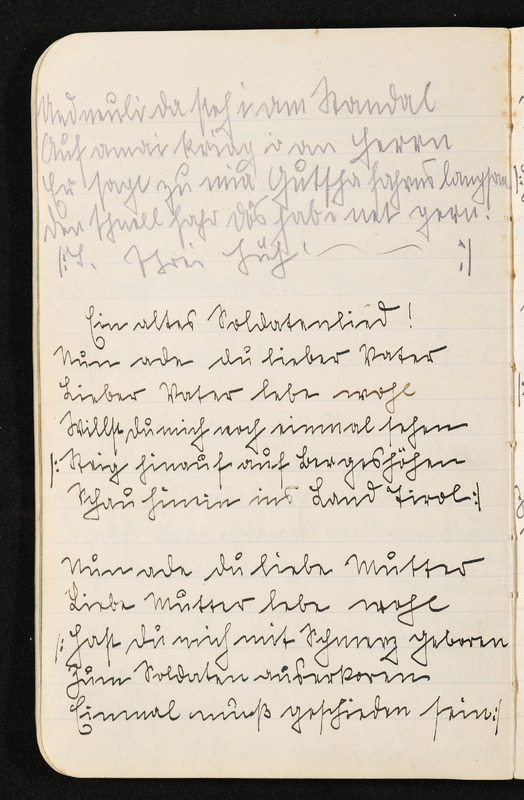 Und neuli da steh i am Standal
Auf amai kriag i an Herrn
Er sagt zu mia Gutscha fahrns langsam
den schnell fahr dös hab i net gern.
|:I. Schrei Hüh! :|
Ein altes Soldatenlied!
Nun ade du lieber Vater
Lieber Vater lebe wohl
Willst du mich noch einmal sehen
|: Steig hinauf auf Bergeshöhen
Schau hinein ins Land Tirol:|
Nun ade du liebe Mutter
Liebe Mutter lebe wohl
|: Hast du mich mit Schmerz geboren
Zum Soldaten auserkoren
Einmal muß geschieden sein:|